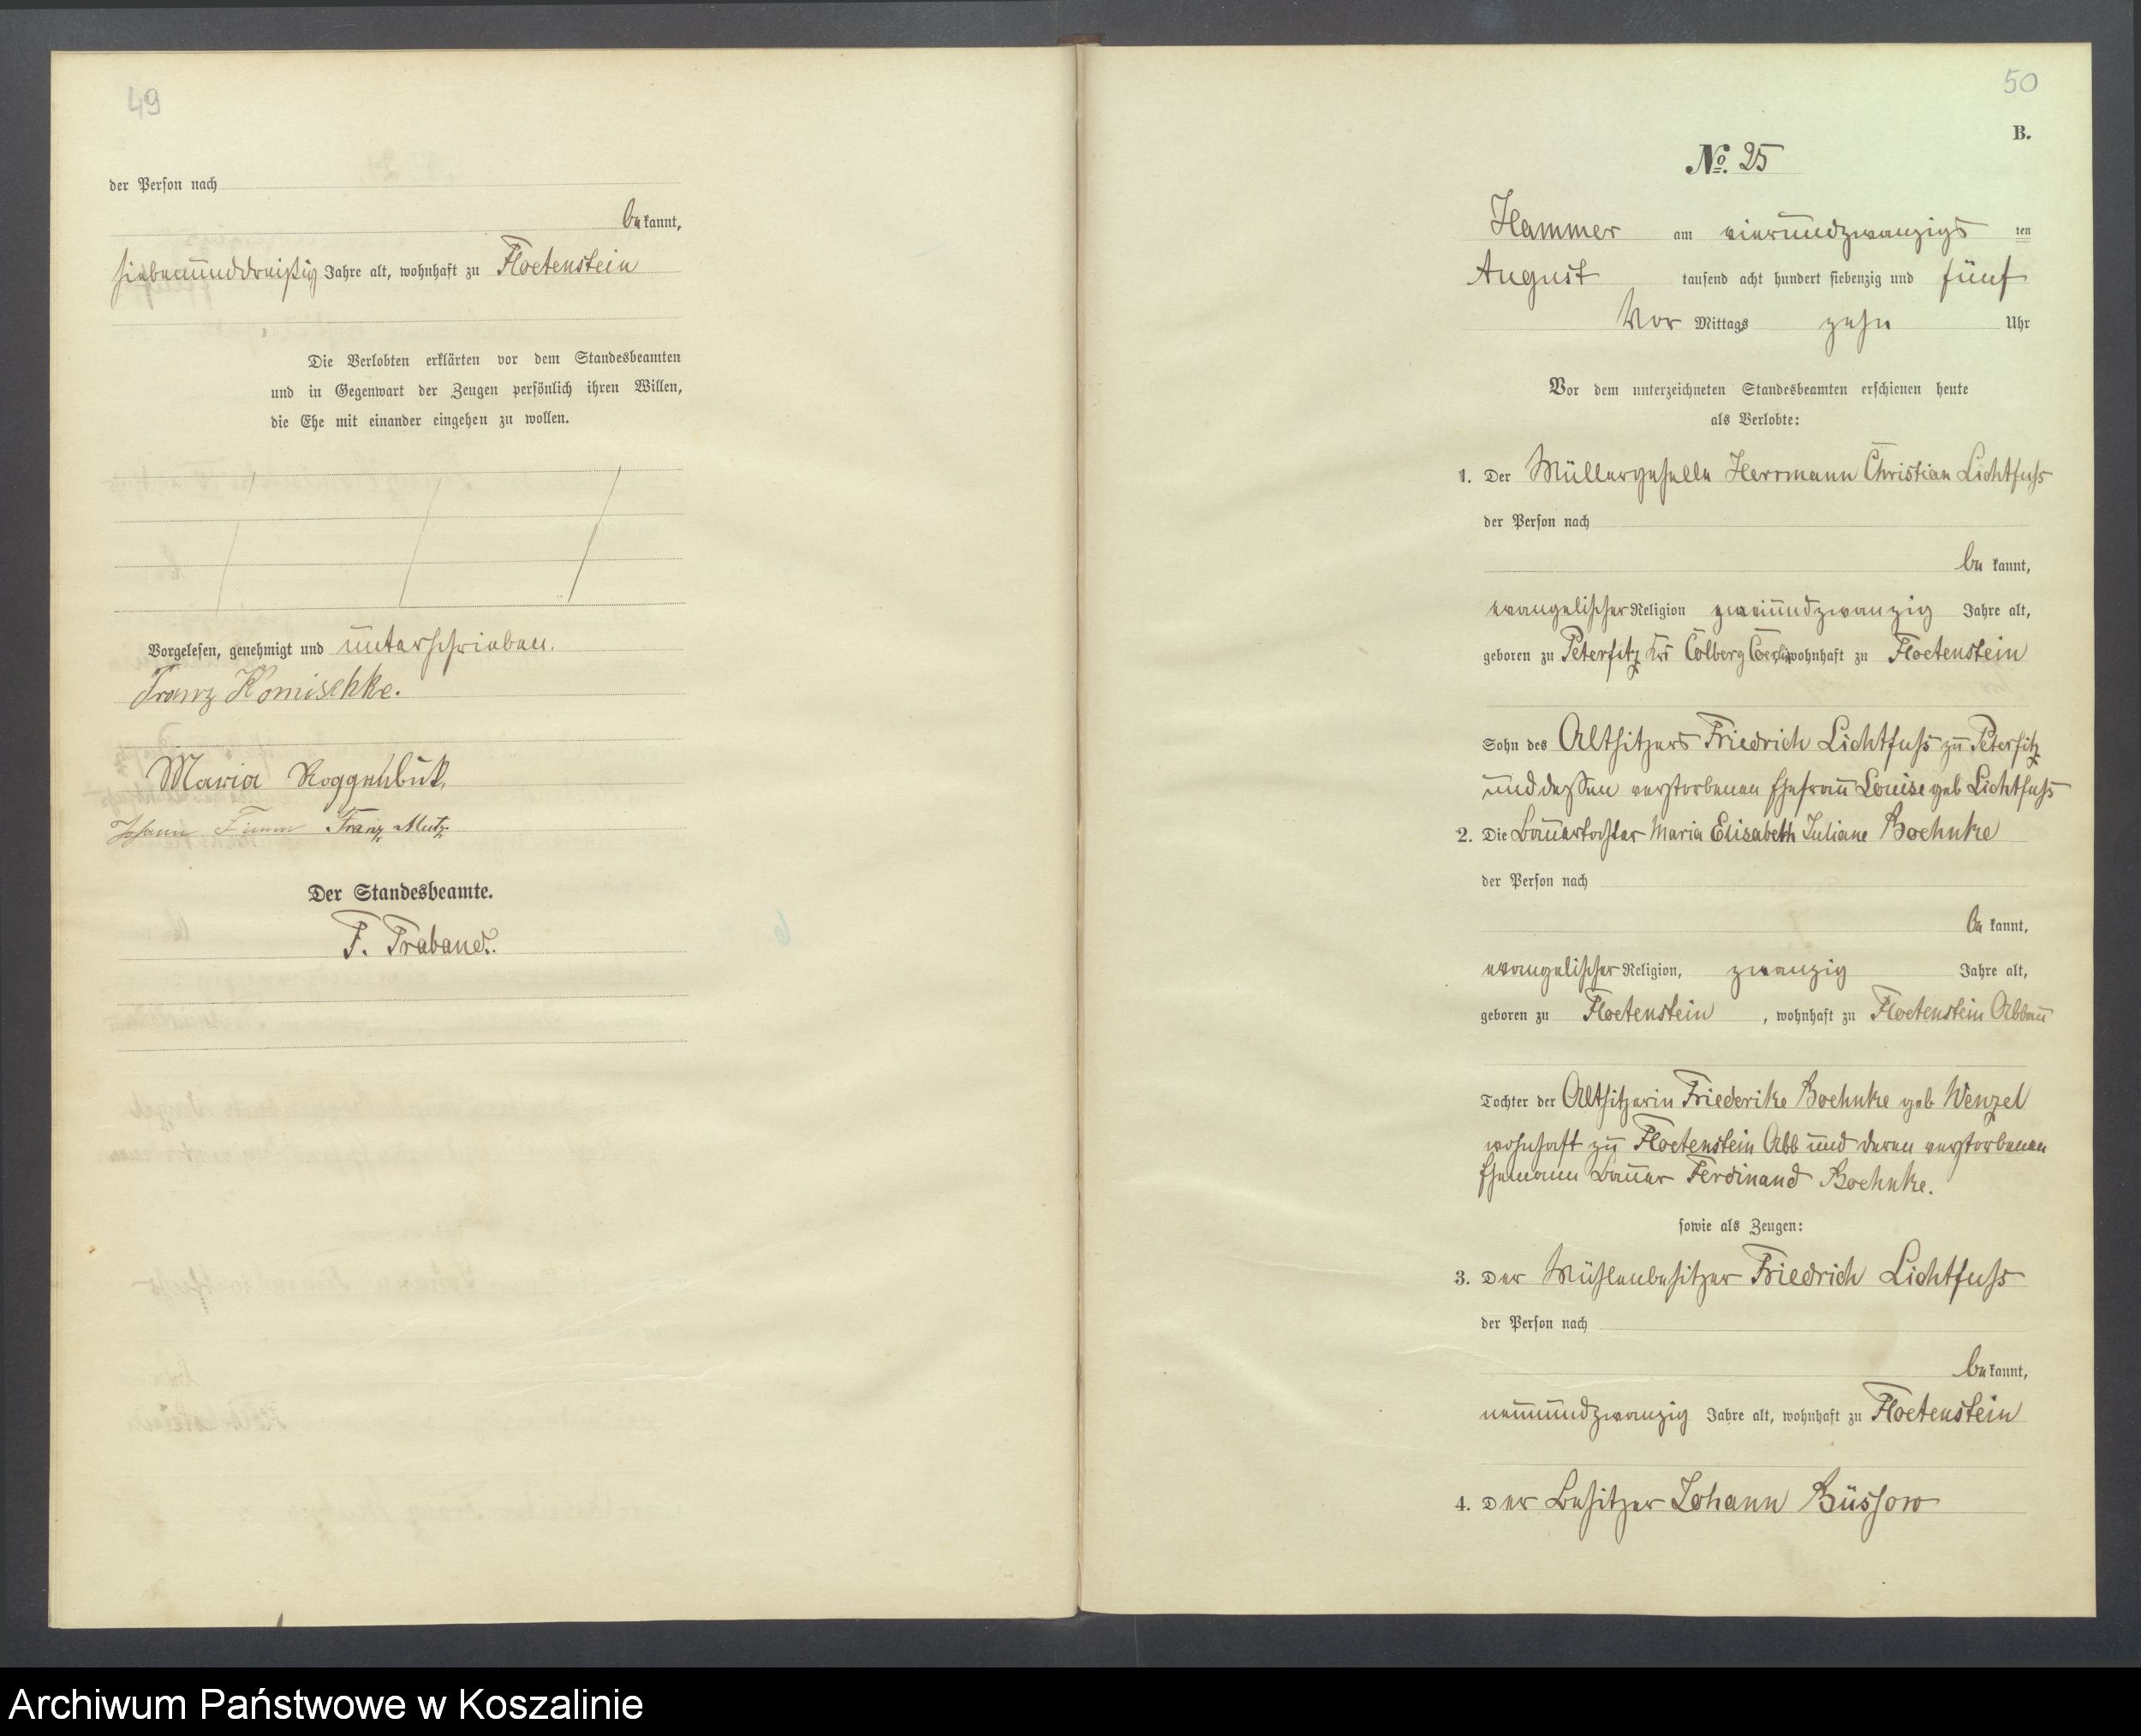 49
der Person nach
bekannt,
siebenunddreißig Jahre alt, wohnhaft zu Floetenstein
Die Verlobten erklärten vor dem Standesbeamten
und in Gegenwart der Zeugen persönlich ihren Willen,
die Ehe mit einander eingehen zu wollen.
Vorgelesen, genehmigt und unterschrieben.
Franz Komischke.
Maria Roggenbuk,
Johann Timm Franz Mutz
Der Standesbeamte.
F. Praband.
50
B.
No. 25
Hammer am vierundzwanzigsten
August tausend acht hundert siebenzig und fünf
Vor Mittags zehn Uhr
Vor dem unterzeichneten Standesbeamten erschienen heute
als Verlobte:
1. Der Müllergeselle Herrmann Christian Lichtfuss
der Person nach
bekannt,
evangelischer Religion zweiundzwanzig Jahre alt,
geboren zu Peterfitz Krs Colberg Coerlin wohnhaft zu Floetenstein
Sohn des Altsitzers Friedrich Lichtfuss zu Peterfitz
und dessen verstorbenen Ehefrau Louise geb Lichtfuss
2. Die Bauertochter Maria Elisabeth Juliane Boehnke
der Person nach
bekannt,
evangelischer Religion, zwanzig Jahre alt,
geboren zu Floetenstein, wohnhaft zu Floetenstein Abbau
Tochter der Altsitzerin Friederike Boehnke geb Wenzel
wohnhaft zu Floetenstein Abb und deren verstorbenen
Ehemann Bauer Ferdinand Boehnke.
sowie als Zeugen:
3. Der Mühlenbesitzer Friedrich Lichtfuss
der Person nach
bekannt,
neunundzwanzig Jahre alt, wohnhaft zu Floetenstein
4. Der Besitzer Johann Büssow
Archiwum Państwowe w Koszalinie